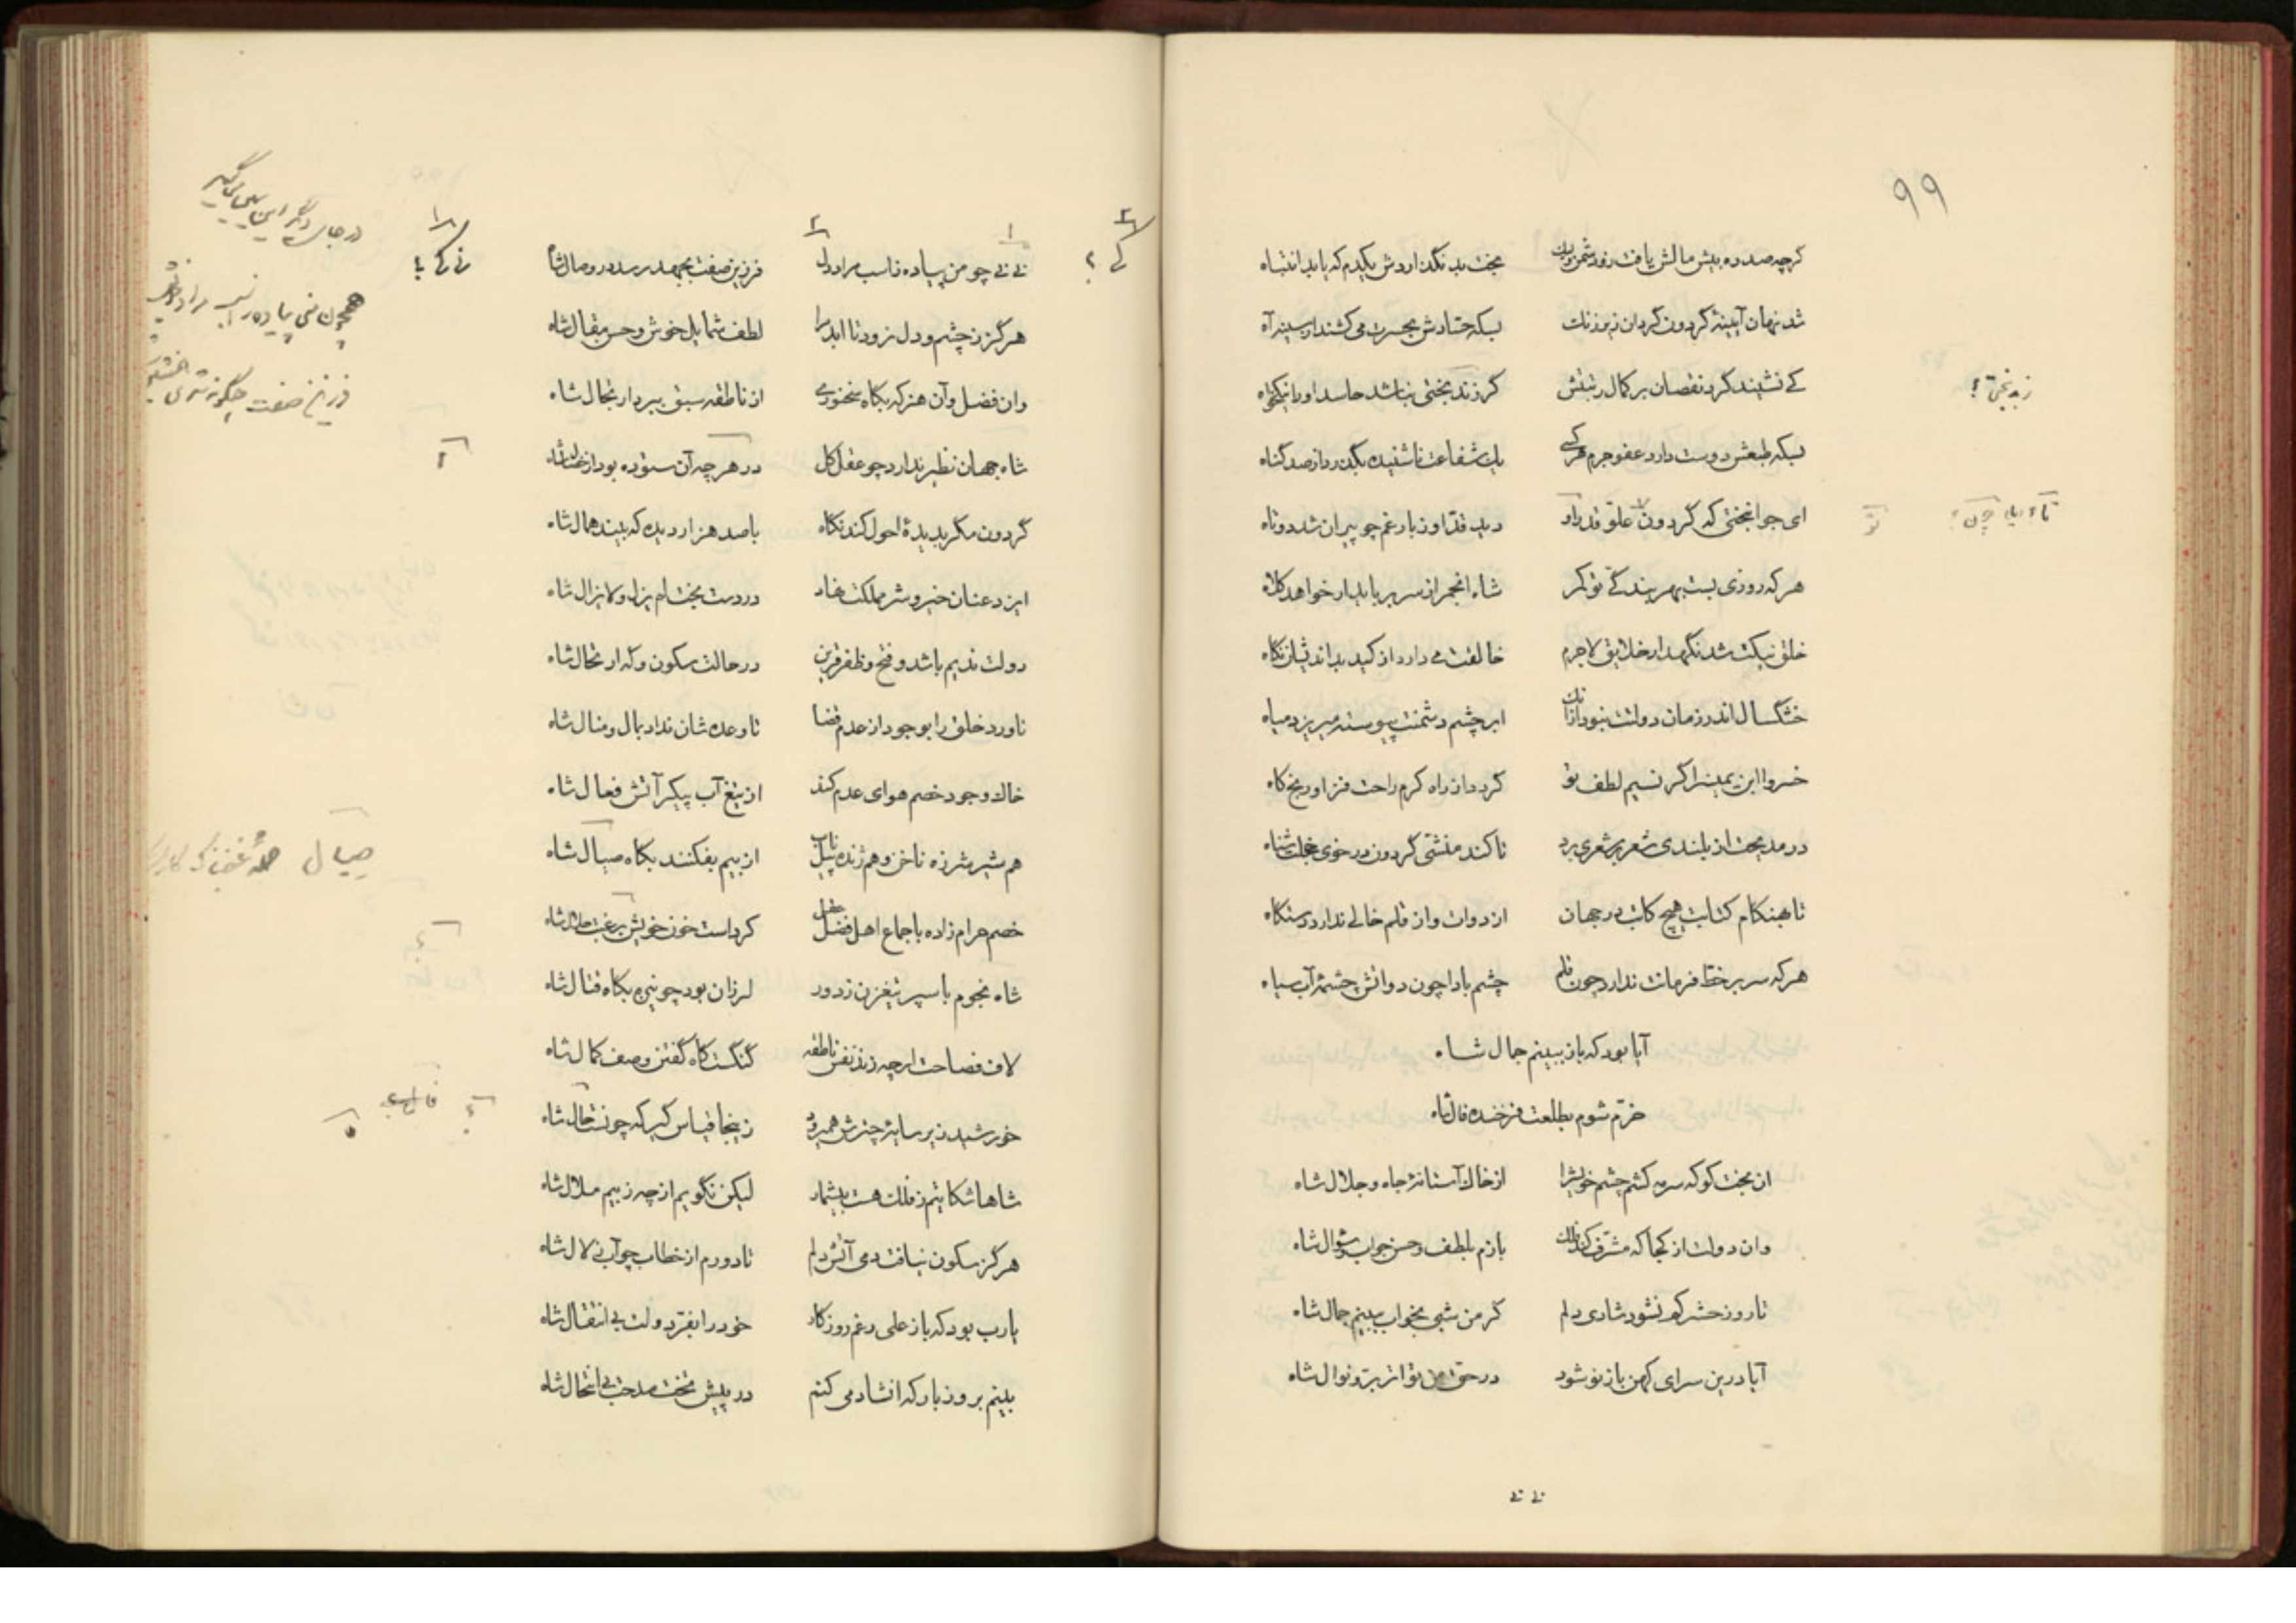 ۹۹
گرچه صد ره بیش مالش یافت زو دشمن ولیک بخت بد نگذاردش یکدم که یابد انتباه
شد نهان آیینهٔ گردون گردان زیر زنگ بسکه حسادش بحسرت می کشند از سینه آه
کی نشیند گرد نقصان بر کمال رتبتش گر ز بدبختی نباشد حاسد او را نیکخواه
بسکه طبعش دوست دارد عفو جرم هر کسی یک شفاعت ناشنیده بگذرد از صد گناه
ای جوانبختی که گردون علو قدر او دید قد او ز بار غم چو پیران شد دوتاه
هر که روزی بست بهر بندگی تو کمر شاه انجم از سر برباید ار خواهد کلاه
خلق نیکت شد نگهدار خلایق لاجرم خالقت می دارد از کید بداندیشان نگاه
خشکسال اندر زمان دولتت نبود از آنک ابر چشم دشمنت پیوسته میریزد میاه
خسروا ابن یمین را گر نسیم لطف تو گردد از راه کرم راحت فزا و رنج کاه
در مدیحت از بلندی شعر بر شعری برد تا کند منشی گردون در خوی خجلت شناه
تا بهنگام کتابت هیچ کاتب در جهان از دوات و از قلم خالی ندارد دستگاه
هر که سر بر خط فرمانت ندارد چون قلم چشم بادا چون دواتش چشمهٔ آب سیاه
آیا بود که باز ببینم جمال شاه
خرم شوم بطلعت فرخنده فال شاه
آن بخت کو که سرمه کشم چشم خویش را از خاک آستانهٔ جاه و جلال شاه
وان دولت از کجا که مشرف کند فلک بازم بلطف و حسن جواب و سؤال شاه
تا روز حشر کم نشود شادی دلم گر من شبی بخواب ببینم جمال شاه
آیا درین سرای کهن باز نو شود در حق من تواتر بر و نوال شاه
نی نی
نی نی چو من پیاده نا اسب مراد دل فرزین صفت بجهد رسد در وصال شاه
هرگز ز چشم و دل نرود تا ابد مرا لطف شمایل خوش و حسن مقال شاه
وان فضل و آن هنر که بگاه سخنوری از ناطقه سبق ببرد ارتجال شاه
شاه جهان نظیر ندارد چو عقل کل در هر چه آن ستوده بود از خصال شاه
گردون مگر بدیدهٔ احول کند نگاه با صد هزار دیده که بیند همال شاه
ایزد عنان خیر و شر مملکت نهاد در دست بخت لم یزل و لایزال شاه
دولت ندیم باشد و فتح و ظفر قرین در حالت سکون و گه ارتحال شاه
ناورد خلق را بوجود از عدم قضا تا وعده شان نداد بمال و منال شاه
خاک وجود خصم هوای عدم کند از تیغ آب پیکر آتش فعال شاه
هم شیر شرزه ناخن و هم زنده پیل ناب از بیم بفکنند بگاه صیال شاه
صیال
خصم حرام زاده باجماع اهل فضل کردست خون خویش برغبت حلال شاه
شاه نجوم با سپر تیغ زن ز دور لرزان بود چو نیزه بگاه قتال شاه
لاف فصاحت ار چه زند نفس ناطقه گنگست گاه گفتن وصف کمال شاه
خورشید زیر سایهٔ چترش همی رود زینجا قیاس گیر که چونست حال شاه
شاها شکایتم ز فلک هست بیشمار لیکن نگویم از چه ز بیم ملال شاه
هرگز سکون نیافت دمی آتش دلم تا دورم از خطاب چو آب زلال شاه
یارب بود که باز علی رغم روزگار خود را بفر دولت بی انتقال شاه
بینم بروز بار که انشاد می کنم در پیش تخت مدحت بی انتحال شاه